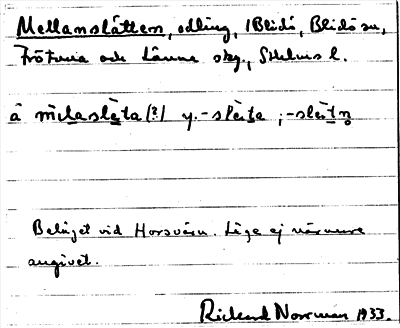 Mellanslätten, odling, i Blidö, Blidö sn,
Frötuna och Länna skg, Sthlms l.
å mèlaslèta (?) y. -slèta ; -slètn
Beläget vid Horsvären. Läge ej närmare
angivet.
Rickard Norrman 1933.